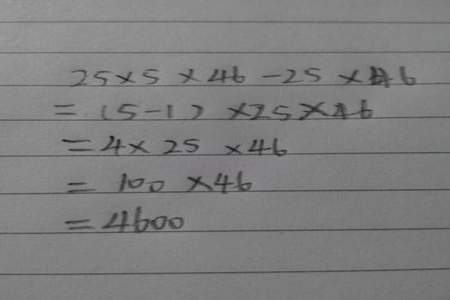 25×5×46-25×46
=(5-1)×25×46
=4×25×46
=100×46
=4600